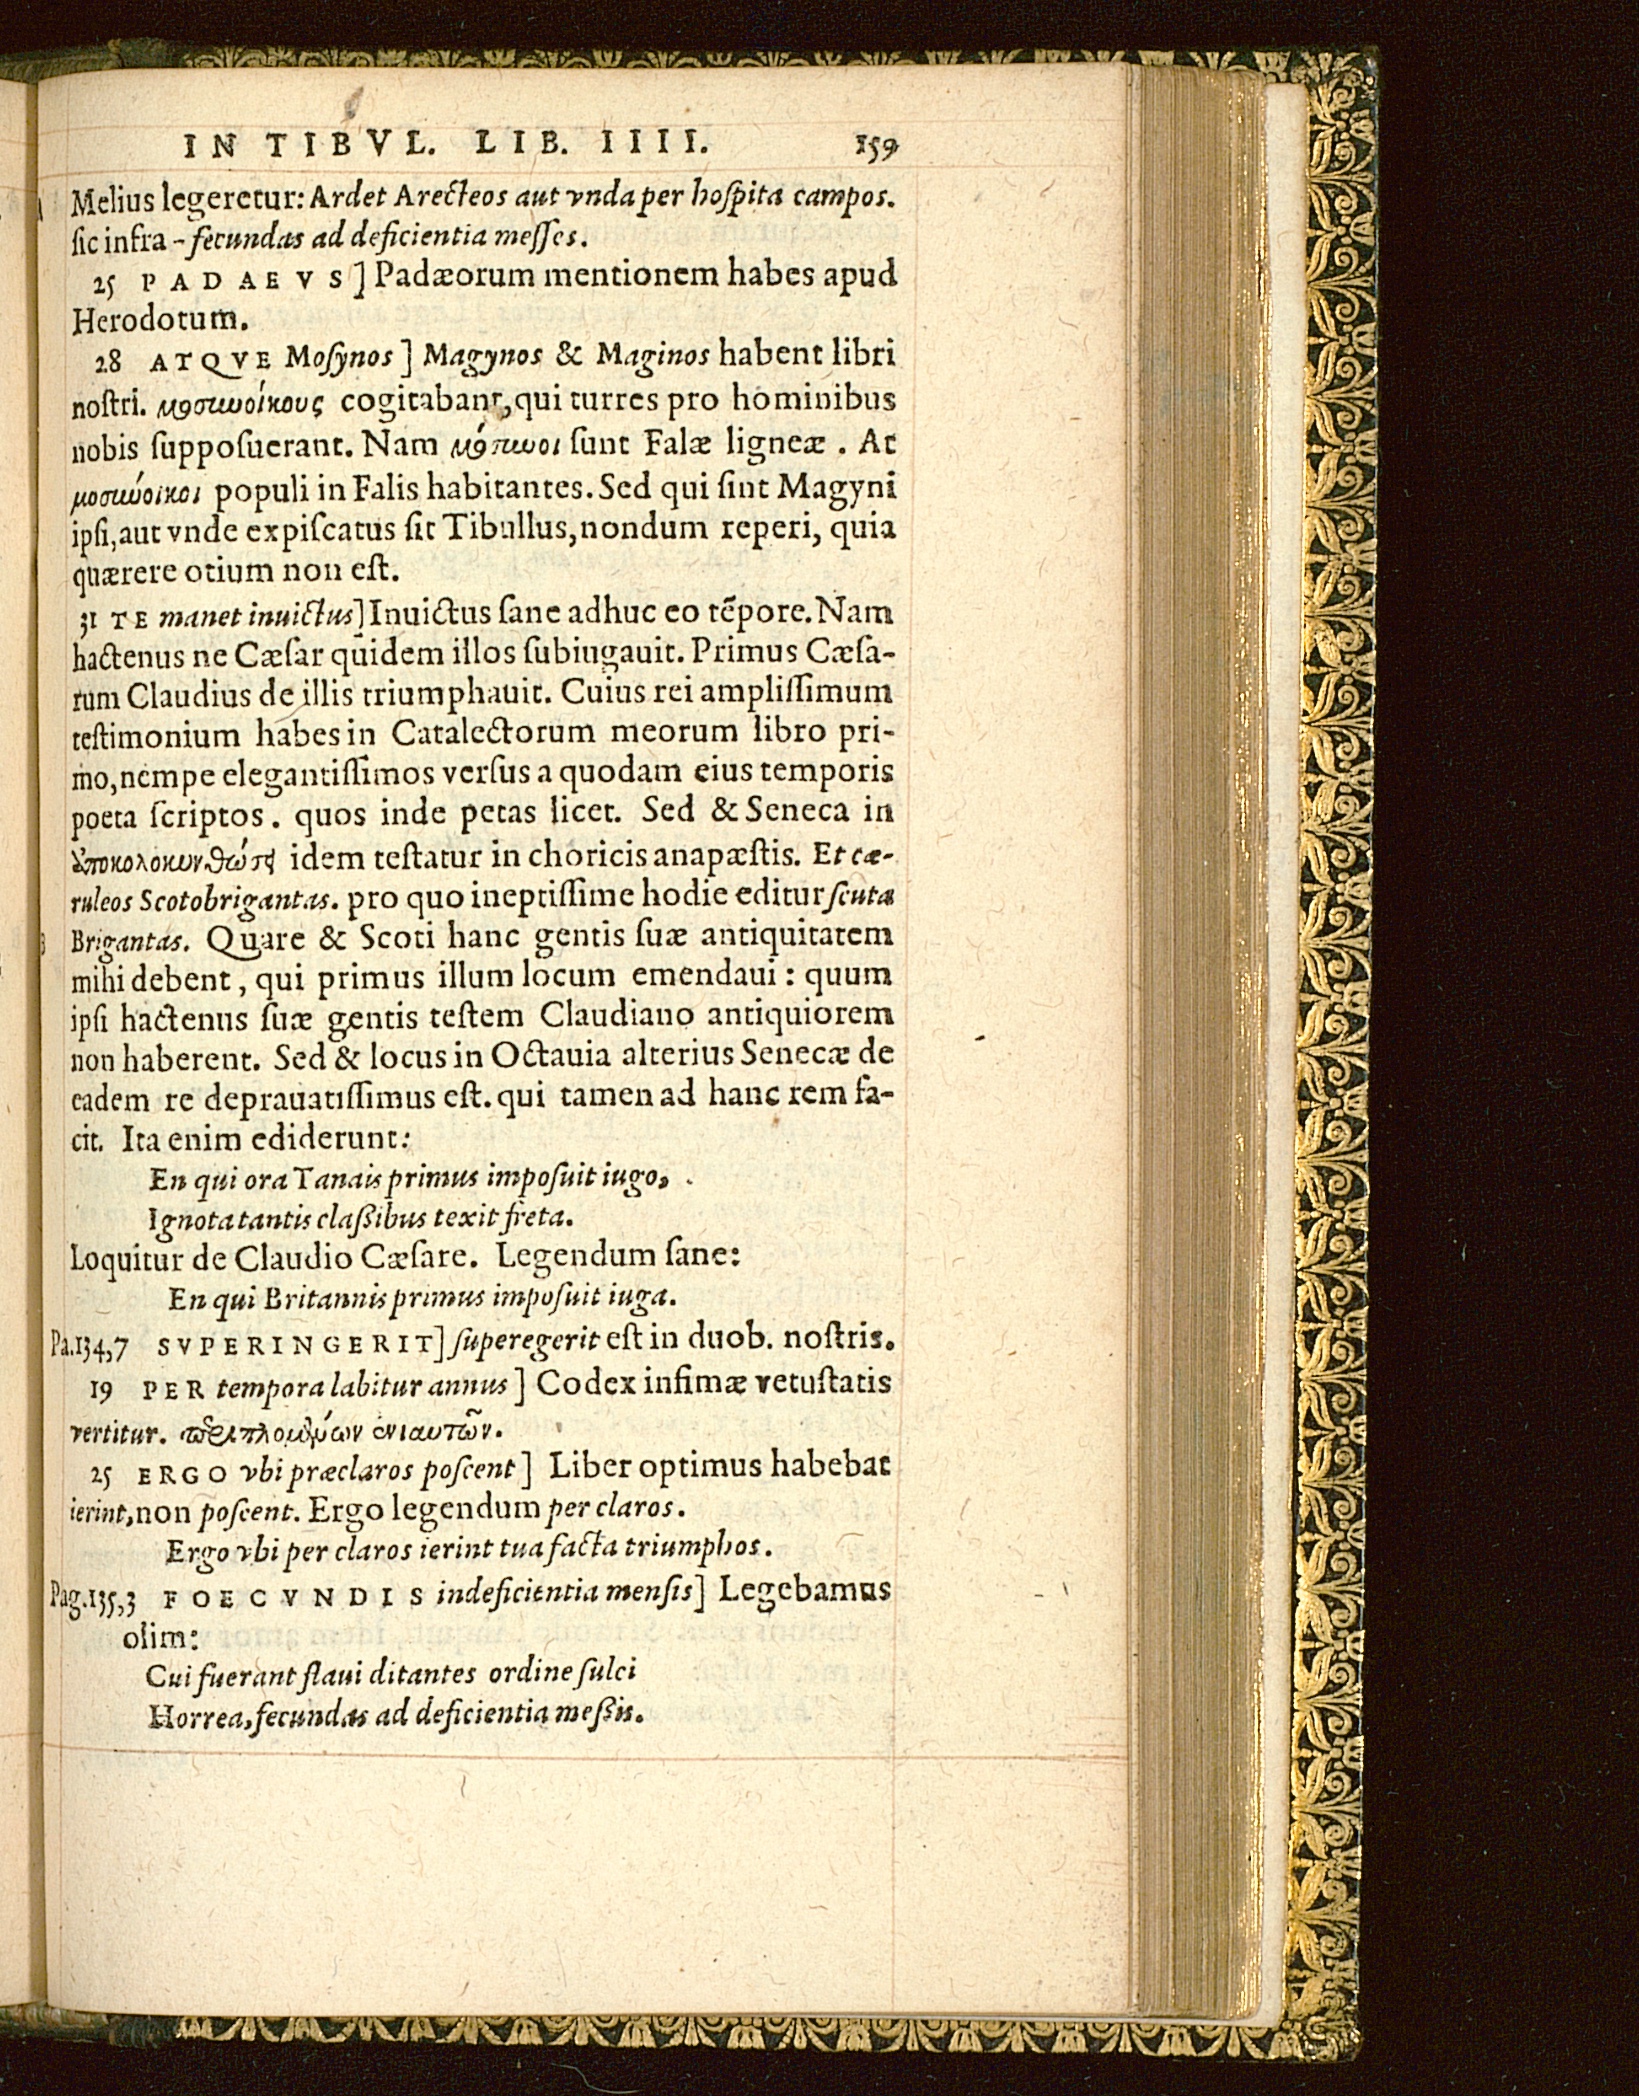 IN TIBVL. LIB. IIII. 159
Melius legeretur: Ardet Arecteos aut vnda per hoſpita campos.
ſic infra - fecundas ad deficientia meſſes.
25 PADAEVS] Padæorum mentionem habes apud
Herodotum.
28 ATQVE Moſynos] Magynos & Maginos habent libri
noſtri. μοσσυνοίκους cogitabant, qui turres pro hominibus
nobis ſuppoſuerant. Nam μόσσυνοι ſunt Falæ ligneæ. At
μοσσυύοικοι populi in Falis habitantes. Sed qui ſint Magyni
ipſi, aut vnde expiſcatus ſit Tibullus, nondum reperi, quia
quærere otium non eſt.
31 TE manet inuictus] Inuictus ſane adhuc eo tẽpore. Nam
hactenus ne Cæſar quidem illos ſubiugauit. Primus Cæſa-
rum Claudius de illis triumphauit. Cuius rei ampliſſimum
teſtimonium habes in Catalectorum meorum libro pri-
mo, nempe elegantiſſimos verſus a quodam eius temporis
poeta ſcriptos. quos inde petas licet. Sed & Seneca in
ἀποκολοκυνθώσει idem teſtatur in choricis anapæſtis. Et cæ-
ruleos Scotobrigantas. pro quo ineptiſſime hodie editur ſcuta
Brigantas. Quare & Scoti hanc gentis ſuæ antiquitatem
mihi debent, qui primus illum locum emendaui: quum
ipſi hactenus ſuæ gentis teſtem Claudiano antiquiorem
non haberent. Sed & locus in Octauia alterius Senecæ de
eadem re deprauatiſſimus eſt. qui tamen ad hanc rem fa-
cit. Ita enim ediderunt:
En qui ora Tanais primus impoſuit iugo,
Ignota tantis claßibus texit freta.
Loquitur de Claudio Cæſare. Legendum ſane:
En qui Britannis primus impoſuit iuga.
Pa.134,7 SVPERINGERIT] ſuperegerit eſt in duob. noſtris.
19 PER tempora labitur annus] Codex infimæ vetuſtatis
vertitur. περιπλομένων ἐνιαυτῶν.
25 ERGO vbi præclaros poſcent] Liber optimus habebat
ierint, non poſcent. Ergo legendum per claros.
Ergo vbi per claros ierint tua facta triumphos.
Pag.135,3 FOECVNDIS indeficientia menſis] Legebamus
olim:
Cui fuerant flaui ditantes ordine ſulci
Horrea, fecundas ad deficientia meßis.